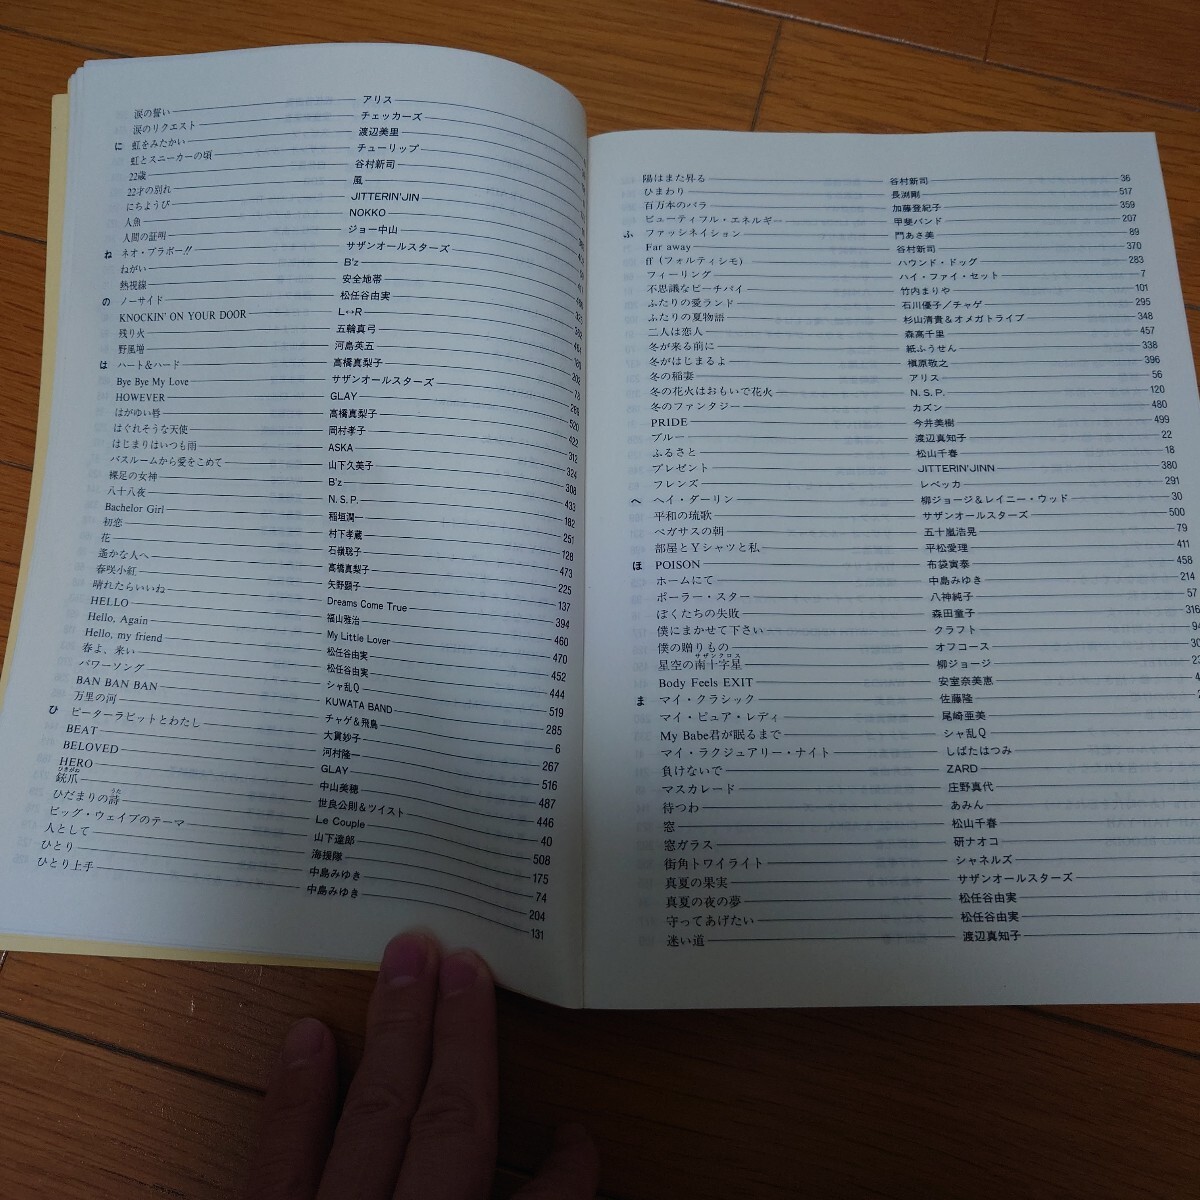 涙の誓い アリス
涙のリクエスト チェッカーズ
に 虹をみたかい 渡辺美里
虹とスニーカーの頃 チューリップ
22歳 谷村新司
22才の別れ 風
にちようび JITTERIN'JIN
人魚 NOKKO
人間の証明 ジョー中山
ね ネオ・ブラボー!! サザンオールスターズ
ねがい B'z
熱視線 安全地帯
の ノーサイド 松任谷由実
KNOCKIN' ON YOUR DOOR L↔R
残り火 五輪真弓
野風増 河島英五
は ハート&ハード 高橋真梨子
Bye Bye My Love サザンオールスターズ
HOWEVER GLAY 520
はがゆい唇 高橋真梨子 422
はぐれそうな天使 岡村孝子 312
はじまりはいつも雨 ASKA 324
バスルームから愛をこめて 山下久美子 308
裸足の女神 B'z 433
八十八夜 N.S.P. 182
Bachelor Girl 稲垣潤一 251
初恋 村下孝蔵 128
花 石嶺聡子 473
遥かな人へ 高橋真梨子 225
春咲小紅 矢野顕子 137
晴れたらいいね Dreams Come True 394
HELLO 福山雅治 460
Hello, Again My Little Lover 470
Hello, my friend 松任谷由実 452
春よ、来い 松任谷由実 444
パワーソング シャ乱Q 519
BAN BAN BAN KUWATA BAND 285
万里の河 チャゲ&飛鳥 6
ひ ピーターラビットとわたし 大貫妙子 267
BEAT 河村隆一 516
BELOVED GLAY 487
HERO 中山美穂 446
銃爪 ひきがね 世良公則&ツイスト 40
ひだまりの詩 うた Le Couple 508
ビッグ・ウェイブのテーマ 山下達郎 175
人として 海援隊 74
ひとり 中島みゆき 204
ひとり上手 中島みゆき 131
陽はまた昇る 谷村新司 36
ひまわり 長渕剛 517
百万本のバラ 加藤登紀子 359
ビューティフル・エネルギー 甲斐バンド 207
ふ ファッシネイション 門あさ美 89
Far away 谷村新司 370
ff (フォルティシモ) ハウンド・ドッグ 283
フィーリング ハイ・ファイ・セット 7
不思議なピーチパイ 竹内まりや 101
ふたりの愛ランド 石川優子/チャゲ 295
ふたりの夏物語 杉山清貴&オメガトライブ 348
二人は恋人 森高千里 457
冬が来る前に 紙ふうせん 338
冬がはじまるよ 槇原敬之 396
冬の稲妻 アリス 56
冬の花火はおもいで花火 N.S.P. 120
冬のファンタジー カズン 480
PRIDE 今井美樹 499
ブルー 渡辺真知子 22
ふるさと 松山千春 18
プレゼント JITTERIN'JINN 380
フレンズ レベッカ 291
へ ヘイ・ダーリン 柳ジョージ&レイニー・ウッド 30
平和の琉歌 サザンオールスターズ 500
ペガサスの朝 五十嵐浩晃 79
部屋とYシャツと私 平松愛理 411
ほ POISON 布袋寅泰 458
ホームにて 中島みゆき 214
ポーラー・スター 八神純子 57
ぼくたちの失敗 森田童子 316
僕にまかせて下さい クラフト
僕の贈りもの オフコース
星空の南十字星 サザンクロス 柳ジョージ
Body Feels EXIT 安室奈美恵
ま マイ・クラシック 佐藤隆
マイ・ピュア・レディ 尾崎亜美
My Babe君が眠るまで シャ乱Q
マイ・ラクジュアリー・ナイト しばたはつみ
負けないで ZARD
マスカレード 庄野真代
待つわ あみん
窓 松山千春
窓ガラス 研ナオコ
街角トワイライト シャネルズ
真夏の果実 サザンオールスターズ
真夏の夜の夢 松任谷由実
守ってあげたい 松任谷由実
迷い道 渡辺真知子